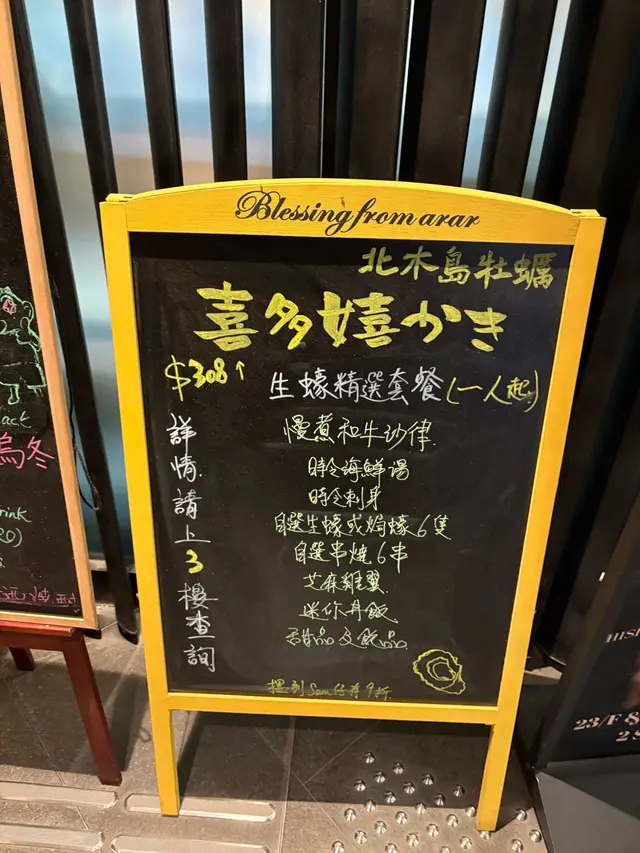 Blessing from arar
北木島牡蠣
喜多嬉かき
$308↑
生蠔精選套餐(一人起)
詳情請上3樓查詢
慢煮和牛沙律
時令海鮮湯
時令刺身
自選生蠔或焗蠔6隻
自選串燒6串
芝麻雞翼
迷你丼飯
甜品及飲品
提到Sam仔有9折
ack
烏冬
rink
20)
HIS
23/F &
2 S